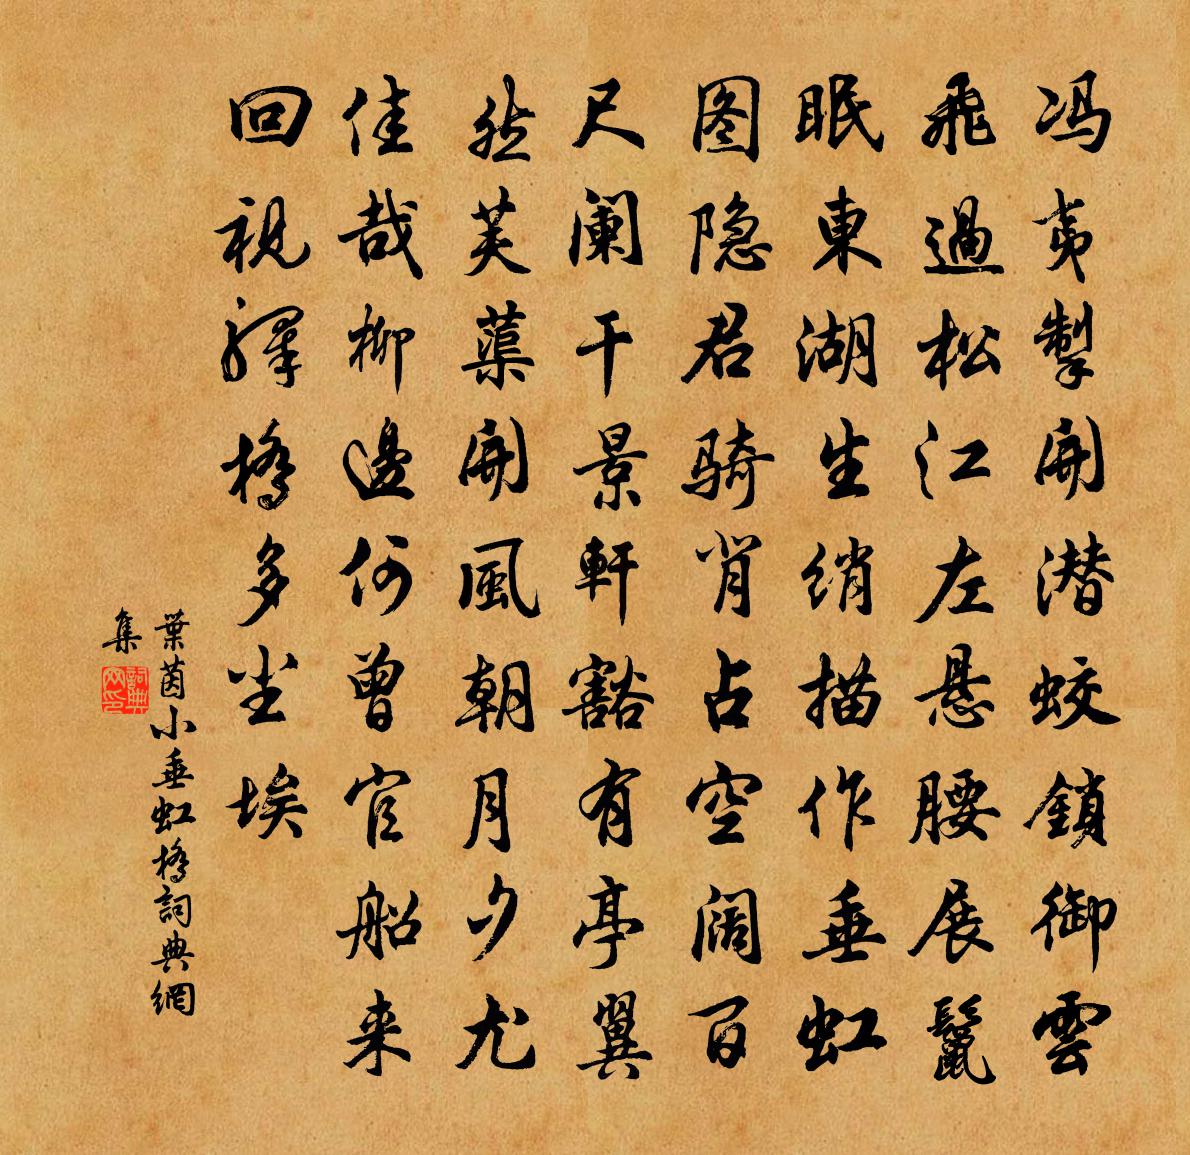 冯夷掣開潜蛟鎖御雲
飛過松江左悬腰展鬣
眠東湖生绡描作垂虹
图隐君骑脊占空阔百
尺阑干景軒豁有亭翼
然芙蕖開風朝月夕尤
佳哉柳邊何曾官船来
回視驛橋多尘埃
葉茵小垂虹橋詞典網
集
詞典網印